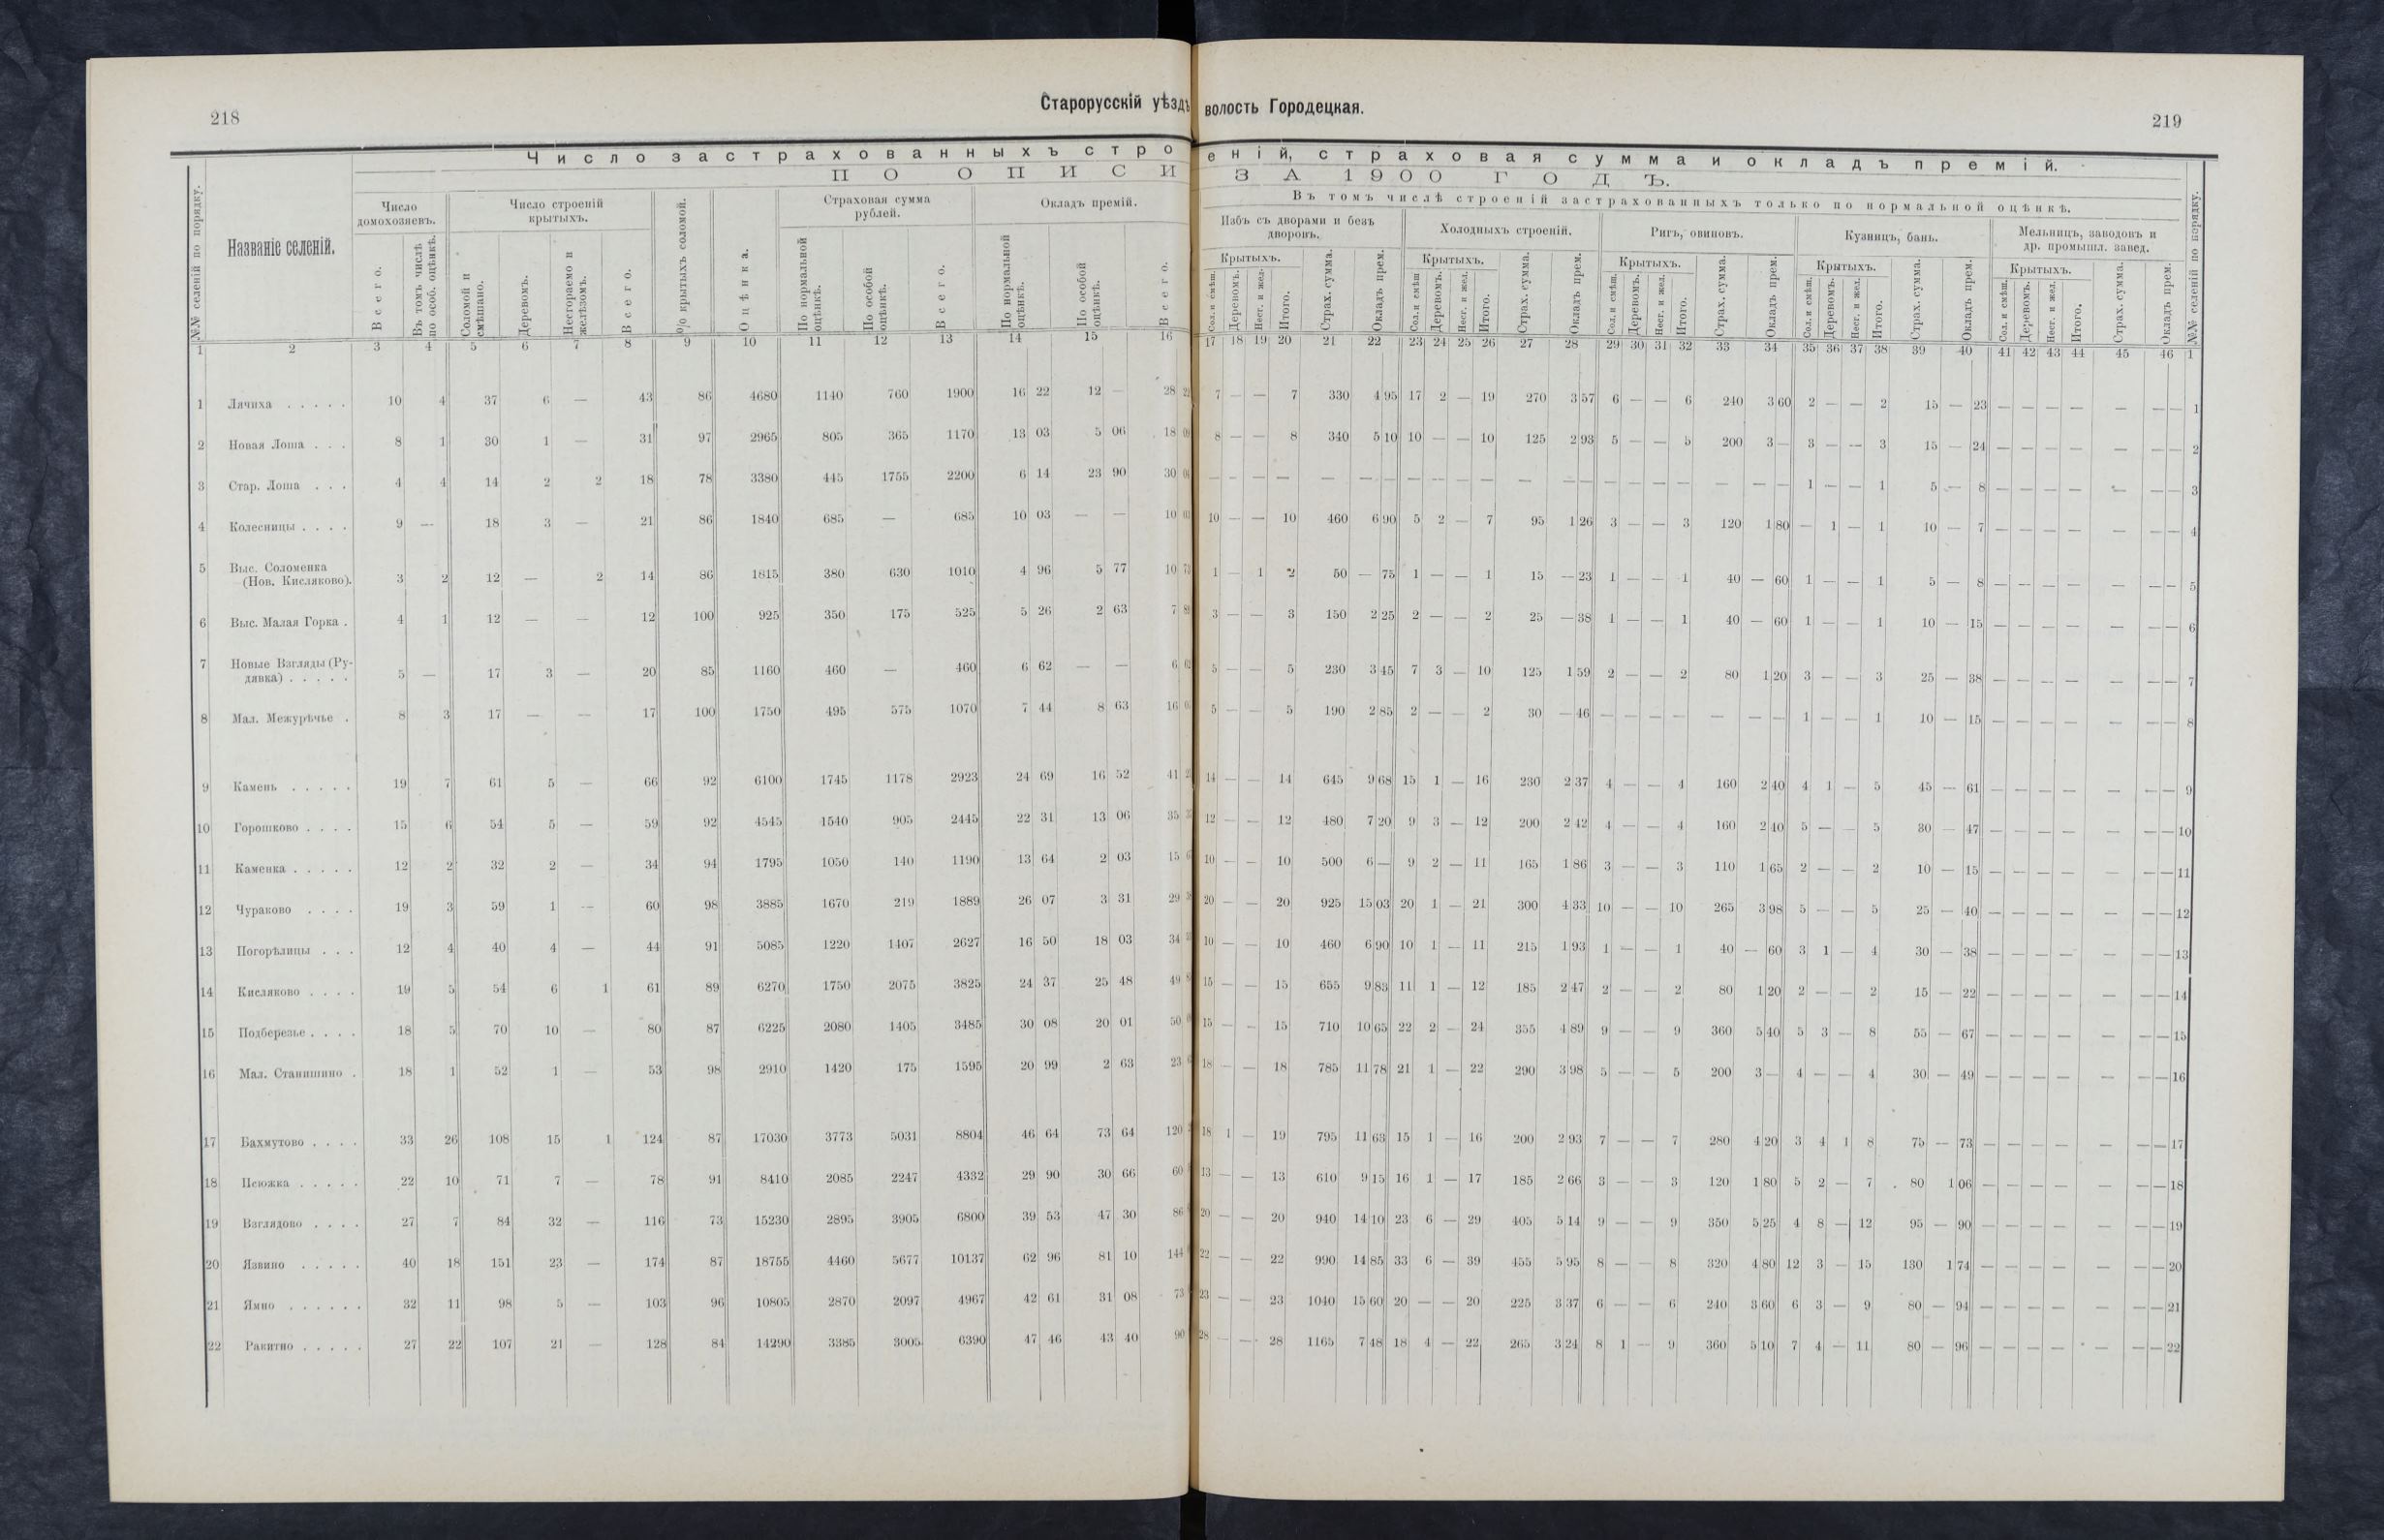 218
Старорусскій уѣздъ
волость Городецкая.
219
Число застрахованныхъ строеній, страховая сумма и окладъ премій.
ПО ОПИСИ ЗА 1900 ГОДЪ.
Въ томъ числѣ строеній застрахованныхъ только по нормальной оцѣнкѣ.
№№ селеній по порядку.
Названіе селеній.
Число домохозяевъ.
Всего.
Въ томъ числѣ по особ. оцѣнкѣ.
Число строеній крытыхъ.
Соломой и смѣшано.
Деревомъ.
Несгораемо и желѣзомъ.
Всего.
% крытыхъ соломой.
Оцѣнка.
Страховая сумма рублей.
По нормальной оцѣнкѣ.
По особой оцѣнкѣ.
Всего.
Окладъ премій.
По нормальной оцѣнкѣ.
По особой оцѣнкѣ.
Всего.
Избъ съ дворами и безъ дворовъ.
Крытыхъ.
Сол. и смѣш.
Деревомъ.
Несг. и жел.
Итого.
Страх. сумма.
Окладъ прем.
Холодныхъ строеній.
Крытыхъ.
Сол. и смѣш
Деревомъ.
Несг. и жел.
Итого.
Страх. сумма.
Окладъ прем.
Ригъ, овиновъ.
Крытыхъ.
Сол. и смѣш.
Деревомъ.
Несг. и жел.
Итого.
Страх. сумма.
Окладъ прем.
Кузницъ, бань.
Крытыхъ.
Сол. и смѣш.
Деревомъ.
Несг. и жел.
Итого.
Страх. сумма.
Окладъ прем.
Мельницъ, заводовъ и др. промышл. завед.
Крытыхъ.
Сол. и смѣш.
Деревомъ.
Несг. и жел.
Итого.
Страх. сумма.
Окладъ прем.
№№ селеній по порядку.
1 2 3 4 5 6 7 8 9 10 11 12 13 14 15 16 17 18 19 20 21 22 23 24 25 26 27 28 29 30 31 32 33 34 35 36 37 38 39 40 41 42 43 44 45 46 1
1 Лячиха . . . . . 10 4 37 6 — 43 86 4680 1140 760 1900 16 22 12 — 28 7 — — 7 330 4 95 17 2 — 19 270 3 57 6 — — 6 240 3 60 2 — — 2 15 — 23 — — — — — — — 1
2 Новая Лоша . . . 8 1 30 1 — 31 97 2965 805 365 1170 13 03 5 06 18 8 — — 8 340 5 10 10 — — 10 125 2 93 5 — — 5 200 3 — 3 — — 3 15 — 24 — — — — — — — 2
3 Стар. Лоша . . . 4 4 14 2 2 18 78 3380 445 1755 2200 6 14 23 90 30 — — — — — — — — — — — — — — — — — — — — — 1 — — 1 5 — 8 — — — — — — — 3
4 Колесницы . . . . 9 — 18 3 — 21 86 1840 685 — 685 10 03 — — 10 10 — — 10 460 6 90 5 2 — 7 95 1 26 3 — — 3 120 1 80 — 1 — 1 10 — 7 — — — — — — — 4
5 Выс. Соломенка
(Нов. Кисляково). 3 2 12 — 2 14 86 1815 380 630 1010 4 96 5 77 10 73 1 — 1 2 50 — 75 1 — — 1 15 — 23 1 — — 1 40 — 60 1 — — 1 5 — 8 — — — — — — — 5
6 Выс. Малая Горка . 4 1 12 — — 12 100 925 350 175 525 5 26 2 63 7 3 — — 3 150 2 25 2 — — 2 25 — 38 1 — — 1 40 — 60 1 — — 1 10 — 15 — — — — — — — 6
7 Новые Взгляды (Ру-
дявка) . . . . . 5 — 17 3 — 20 85 1160 460 — 460 6 62 — — 6 62 5 — — 5 230 3 45 7 3 — 10 125 1 59 2 — — 2 80 1 20 3 — — 3 25 — 38 — — — — — — — 7
8 Мал. Межурѣчье . 8 3 17 — — 17 100 1750 495 575 1070 7 44 8 63 16 5 — — 5 190 2 85 2 — — 2 30 — 46 — — — — — — — 1 — — 1 10 — 15 — — — — — — — 8
9 Камень . . . . . 19 7 61 5 — 66 92 6100 1745 1178 2923 24 69 16 52 41 14 — — 14 645 9 68 15 1 — 16 230 2 37 4 — — 4 160 2 40 4 1 — 5 45 — 61 — — — — — — — 9
10 Горошково . . . . 15 6 54 5 — 59 92 4545 1540 905 2445 22 31 13 06 35 12 — — 12 480 7 20 9 3 — 12 200 2 42 4 — — 4 160 2 40 5 — — 5 30 — 47 — — — — — — — 10
11 Каменка . . . . . 12 2 32 2 — 34 94 1795 1050 140 1190 13 64 2 03 15 10 — — 10 500 6 — 9 2 — 11 165 1 86 3 — — 3 110 1 65 2 — — 2 10 — 15 — — — — — — — 11
12 Чураково . . . . 19 3 59 1 — 60 98 3885 1670 219 1889 26 07 3 31 29 20 — — 20 925 15 03 20 1 — 21 300 4 33 10 — — 10 265 3 98 5 — — 5 25 — 40 — — — — — — — 12
13 Погорѣлицы . . . 12 4 40 4 — 44 91 5085 1220 1407 2627 16 50 18 03 34 10 — — 10 460 6 90 10 1 — 11 215 1 93 1 — — 1 40 — 60 3 1 — 4 30 — 38 — — — — — — — 13
14 Кисляково . . . . 19 5 54 6 1 61 89 6270 1750 2075 3825 24 37 25 48 49 15 — — 15 655 9 83 11 1 — 12 185 2 47 2 — — 2 80 1 20 2 — — 2 15 — 22 — — — — — — — 14
15 Подберезье . . . . 18 5 70 10 — 80 87 6225 2080 1405 3485 30 08 20 01 50 15 — — 15 710 10 65 22 2 — 24 355 4 89 9 — — 9 360 5 40 5 3 — 8 55 — 67 — — — — — — — 15
16 Мал. Станишино . 18 1 52 1 — 53 98 2910 1420 175 1595 20 99 2 63 23 18 — — 18 785 11 78 21 1 — 22 290 3 98 5 — — 5 200 3 — 4 — — 4 30 — 49 — — — — — — — 16
17 Бахмутово . . . . 33 26 108 15 1 124 87 17030 3773 5031 8804 46 64 73 64 120 18 1 — 19 795 11 63 15 1 — 16 200 2 93 7 — — 7 280 4 20 3 4 1 8 75 — 73 — — — — — — — 17
18 Псюжка . . . . . 22 10 71 7 — 78 91 8410 2085 2247 4332 29 90 30 66 60 13 — — 13 610 9 15 16 1 — 17 185 2 66 3 — — 3 120 1 80 5 2 — 7 80 1 06 — — — — — — — 18
19 Взглядово . . . . 27 7 84 32 — 116 73 15230 2895 3905 6800 39 53 47 30 86 20 — — 20 940 14 10 23 6 — 29 405 5 14 9 — — 9 350 5 25 4 8 — 12 95 — 90 — — — — — — — 19
20 Язвино . . . . . 40 18 151 23 — 174 87 18755 4460 5677 10137 62 96 81 10 144 22 — — 22 990 14 85 33 6 — 39 455 5 95 8 — — 8 320 4 80 12 3 — 15 130 1 74 — — — — — — — 20
21 Ямно . . . . . . 32 11 98 5 — 103 96 10805 2870 2097 4967 42 61 31 08 73 23 — — 23 1040 15 60 20 — — 20 225 3 37 6 — — 6 240 3 60 6 3 — 9 80 — 94 — — — — — — — 21
22 Ракитно . . . . . 27 22 107 21 — 128 84 14290 3385 3005 6390 47 46 43 40 90 28 — — 28 1165 7 48 18 4 — 22 265 3 24 8 1 — 9 360 5 10 7 4 — 11 80 — 96 — — — — — — — 22